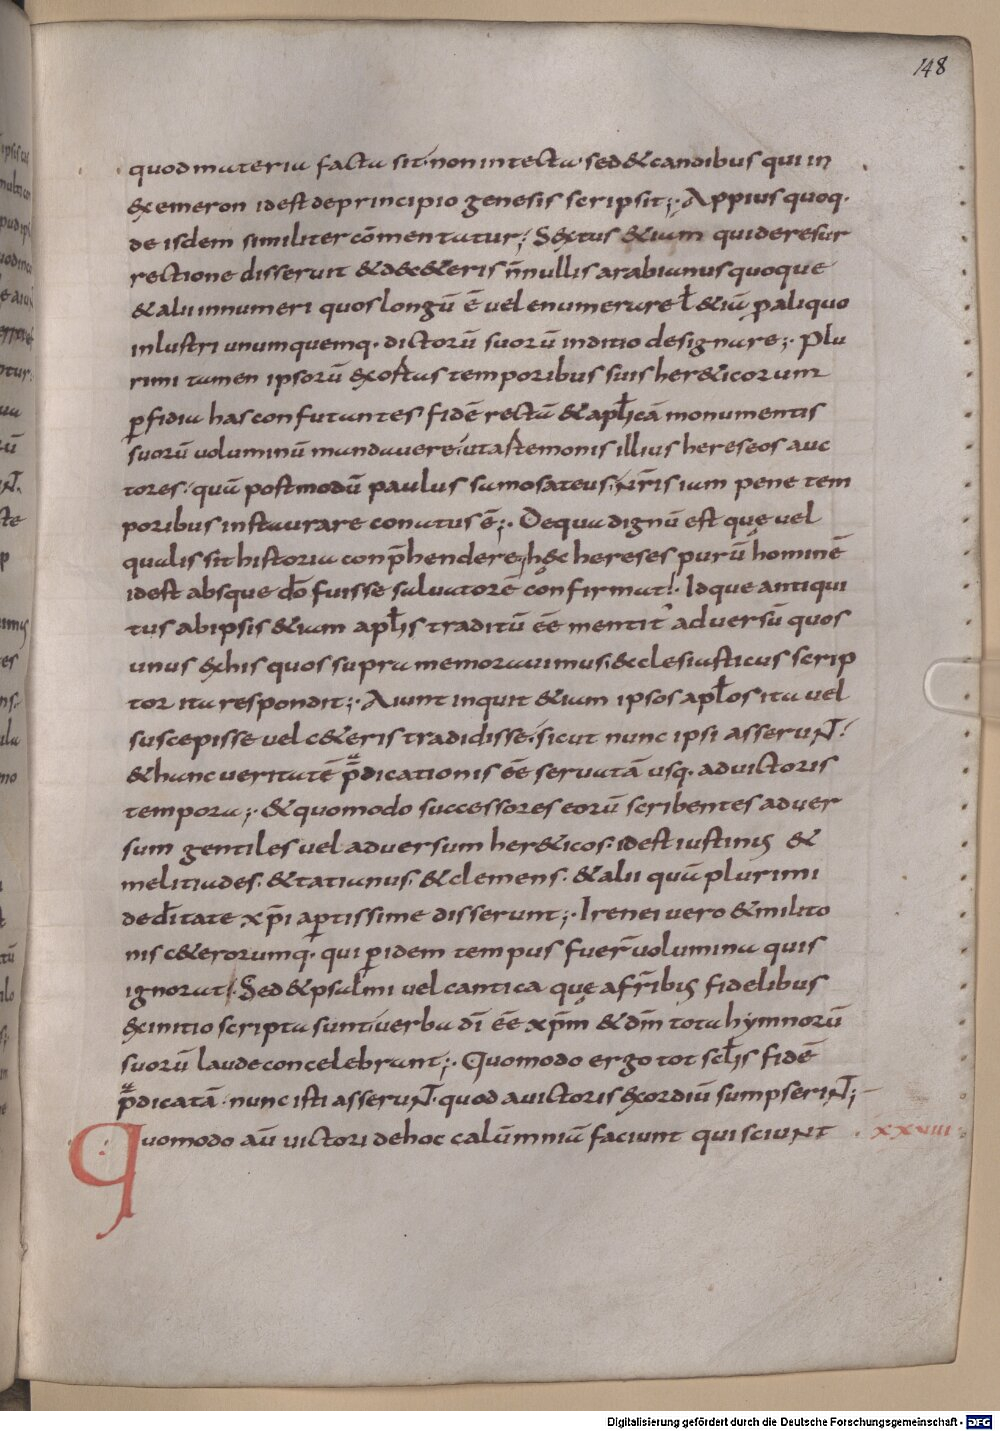 148
quod materia facta sit · non intecta · sed & candibus qui in
exemeron id est de principio genesis scripsit ;· Appius quoq·
de isdem similiter cōmentatur ; Sextus &iam qui de resur
rectione disseruit & de c&eris ñnullis arabianus quoque
& alii innumeri quos longū ē vel enumerare ł &iā p aliquo
inlustri unumquemq· dictorū suorū inditio designare ;· Plu
rimi tamen ipsorū exostas temporibus suis her&icorum
pfidia has confutantes fidē rectā & aplicā monumentis
suorū voluminū mandavere · ut astemonis illius hereseos auc
tores · quā postmodū paulus samosateus · nr̄is iam pene tem
poribus instaurare conatus ē ;· De qua dignū est quę vel
qualis sit historia conp̄hendere ; hęc hereses purū hominē
id est absque dō fuisse salvatorē confirmat · Idque antiqui
tus ab ipsis &iam apłis traditū ēē mentit' adversū quos
unus ex his quos supra memoravimus · ecclesiasticus scrip
tor ita respondit ;· Aiunt inquit &iam ipsos apłos ita vel
suscepisse vel c&eris tradidisse · sicut nunc ipsi asseruNT ·
& hanc veritatē p̄dicationis ēē servatā usq· ad victoris
tempora ;· & quomodo successores eorū scribentes adver
sum gentiles vel adversum her&icos · id est iustinus &
melitiades · & tatianus · & clemens · & alii quā plurimi
de dītate xp̄i aptissime disserunt ;· Irenei vero & milito
nis c&erorumq· qui p idem tempus fuer̄ volumina quis
ignorat · Sed & psalmi vel cantica quę a fr̄ibus fidelibus
ex initio scripta sunt · verbū dī ēē xp̄m & dm̄ tota hymnorū
suorū laude concelebrant ;· Quomodo ergo tot sclis fidē
p̄dicatā · nunc isti asseruNT · quod a victoris exordiū sumpseriNT ;
Quomodo aū victori de hoc calūmniā faciunt qui sciuNT
xxviii
Digitalisierung gefördert durch die Deutsche Forschungsgemeinschaft - DFG